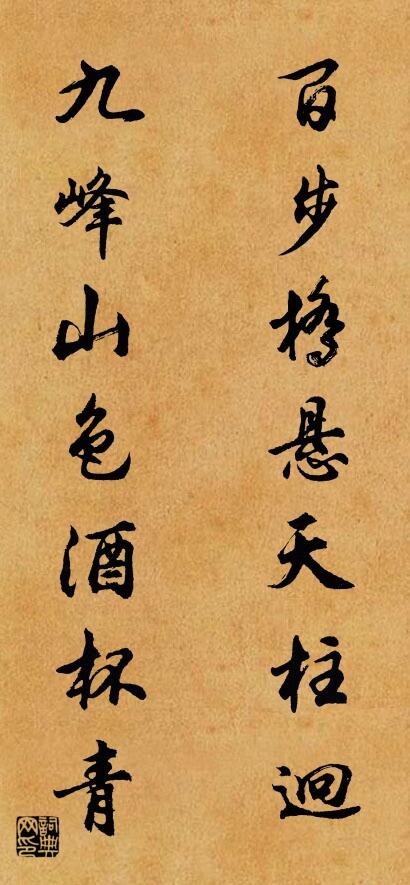 百步桥悬天柱迥
九峰山色酒杯青
詞典网印